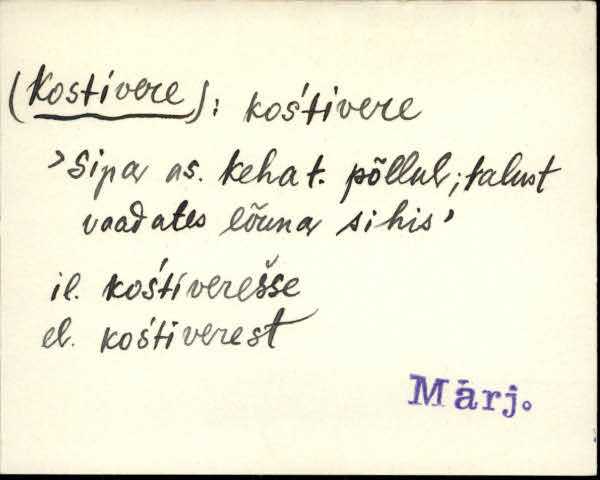 (Kostivere): kos´tivere
›Sipa as. Keha t. põllul; talust
vaadates lõuna sihis›
il. kos´tiverešse
el. kos´tiverest
Märj.